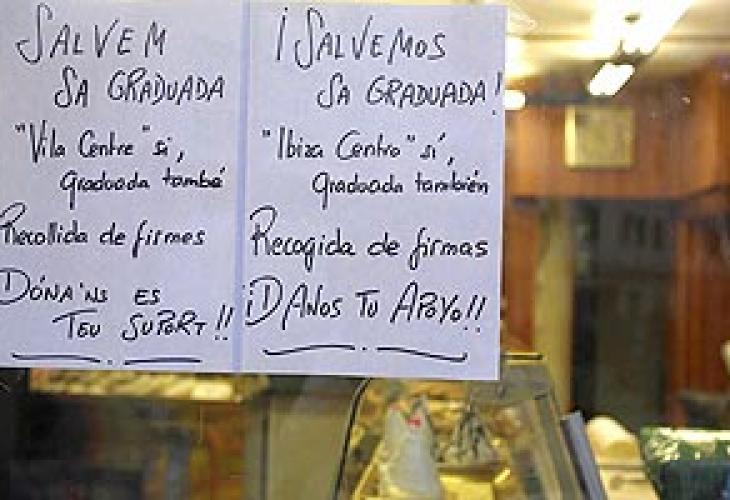 SALVEM
SA GRADUADA
"Vila Centre" si,
graduada també
Recollida de firmes
DÓNA'NS ES
TEU SUPORT!!
¡SALVEMOS
SA GRADUADA!
"Ibiza Centro" sí,
graduada también
Recogida de firmas
¡DANOS TU APOYO!!